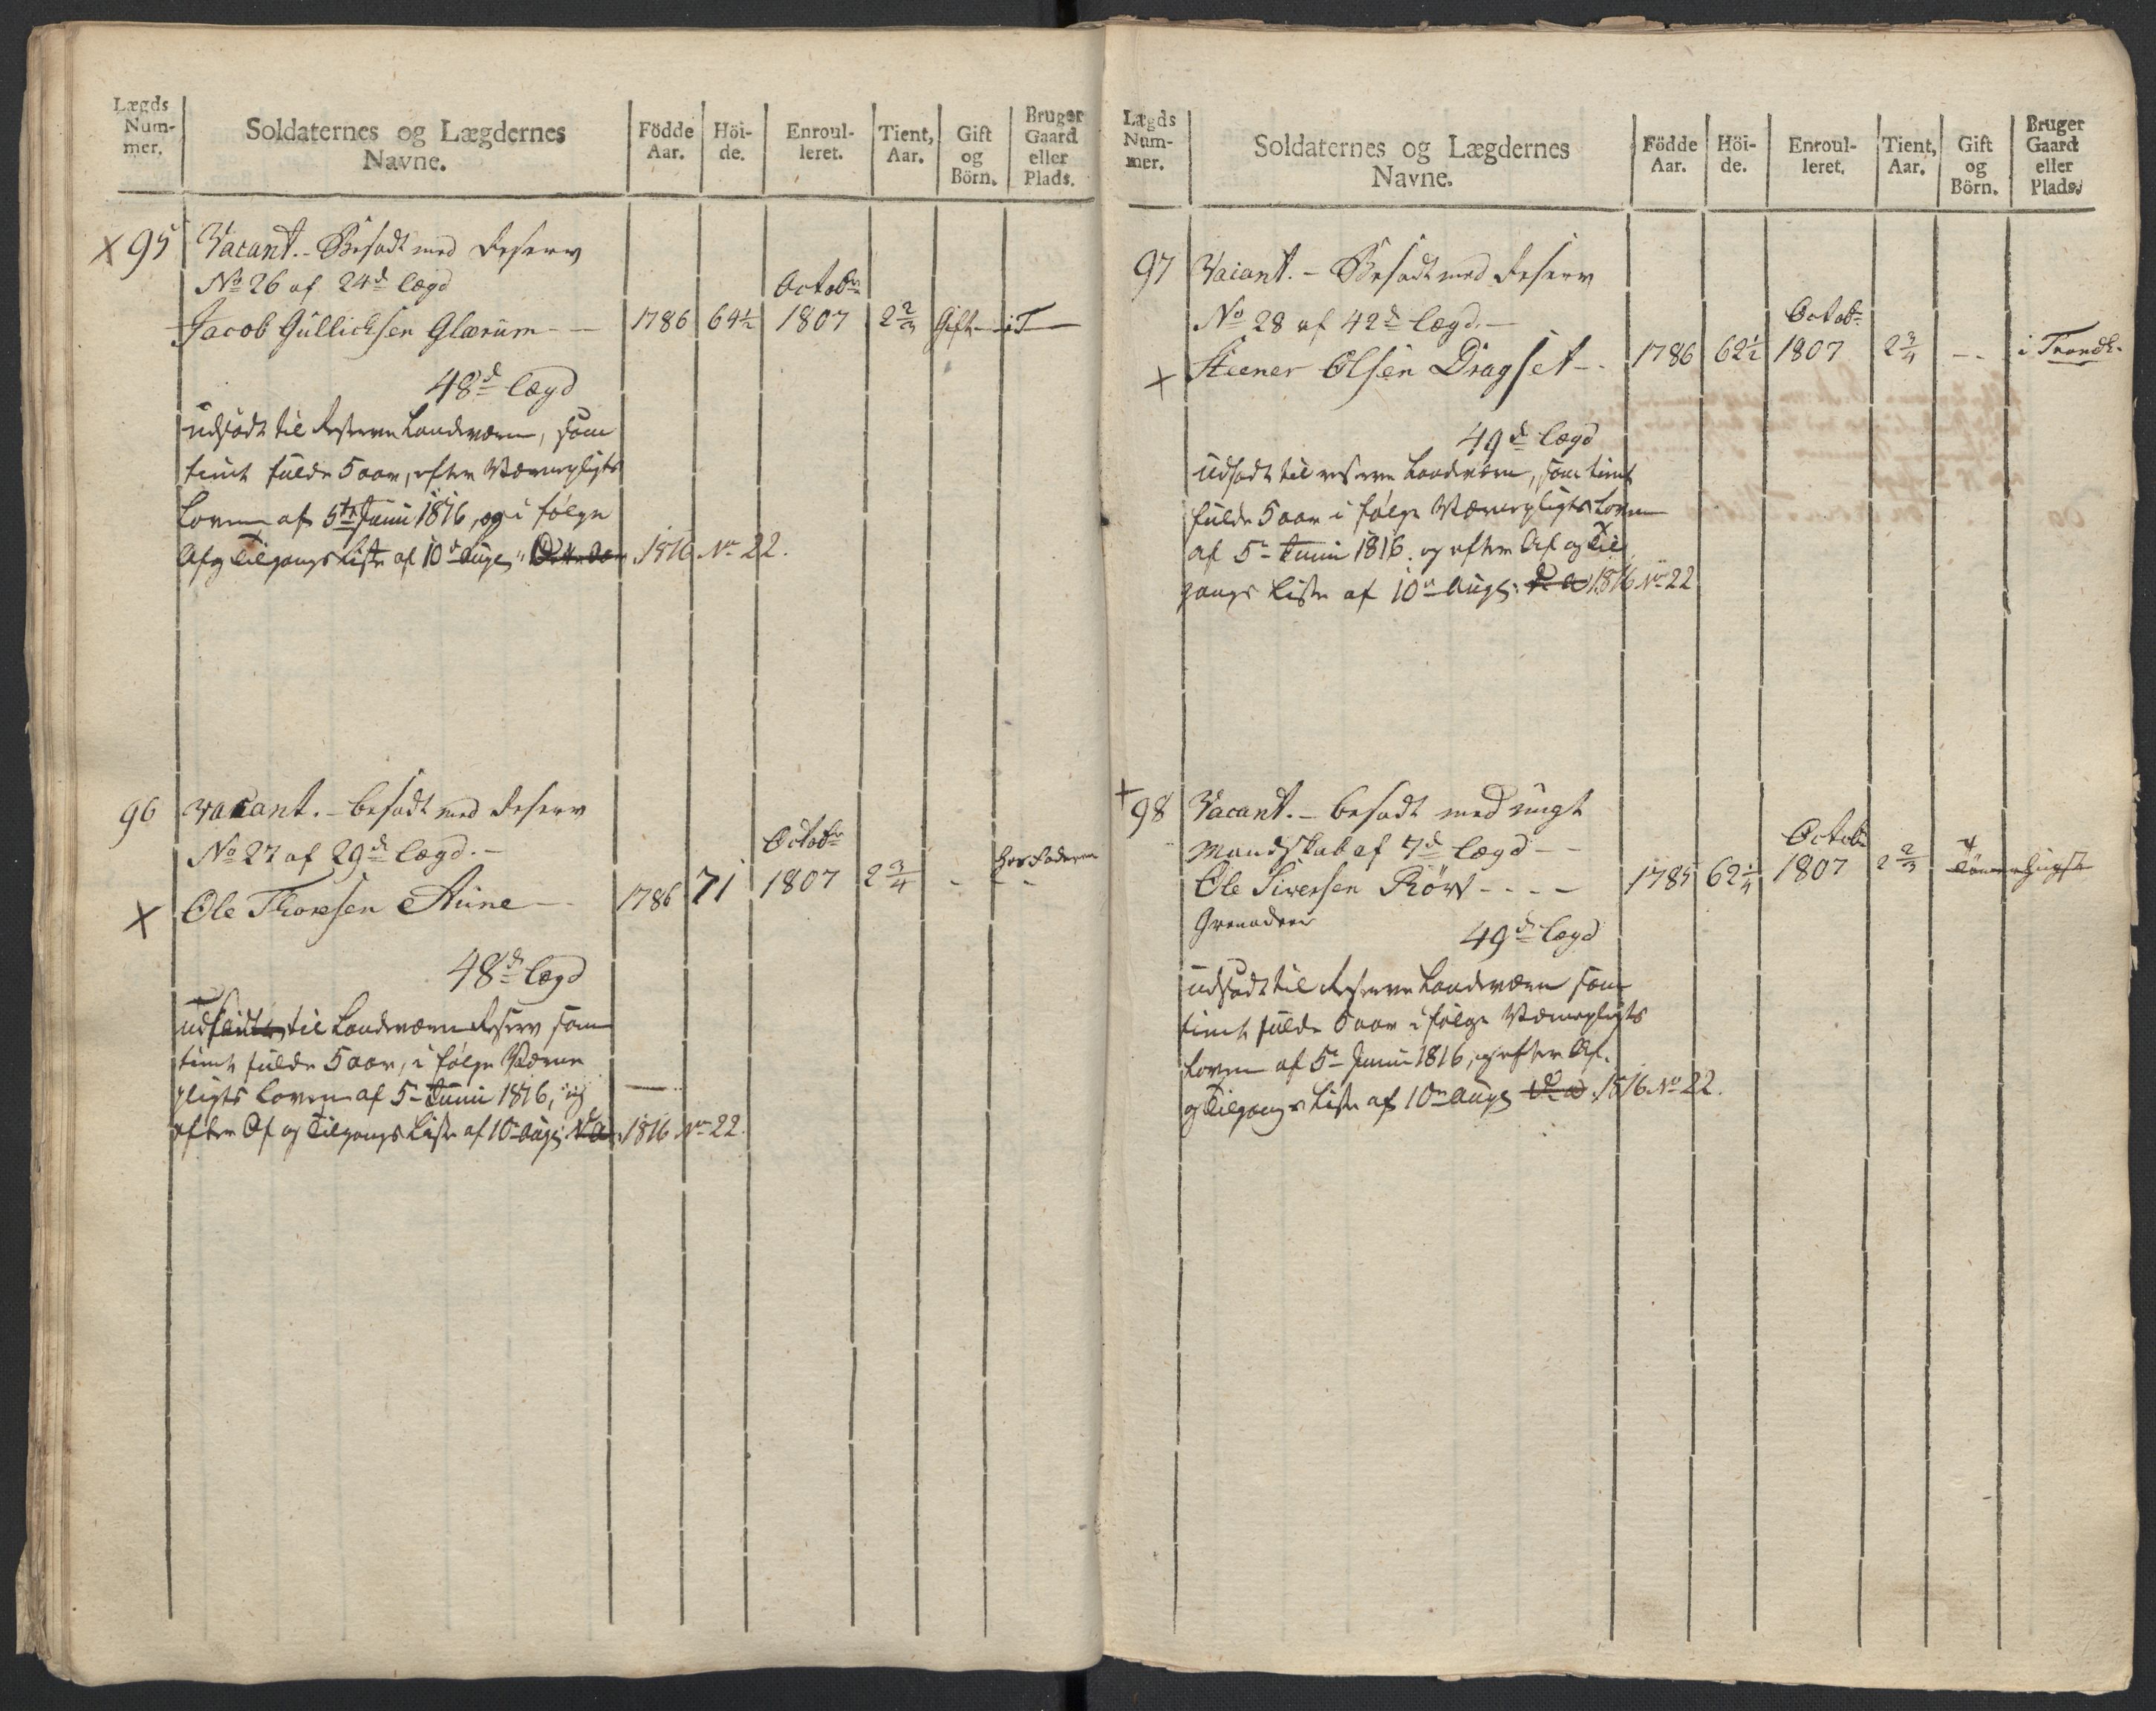 Lægds Num- mer.
Soldaternes og Lægdernes Navne.
Födde Aar.
Höi- de.
Enroul- leret.
Tient, Aar.
Gift og Börn.
Bruger Gaard eller Plads.
× 95 Vacant. - Besadt med Reserv
No 26 af 24d lægd
Octobr
Jacob Güllichsen Glærüm - - 1786 64½ 1807 2⅔ Gift - i T
48d lægd
udsadt til Reserve Landværn, som
tient fulde 5 aar, efter Værnepligts
Loven af 5te Junii 1816, og i følge
Af og Tilgangs Liste af 10de Aug. 1816 No 22.
96 Vacant. - besadt med Reserv
No 27 af 29d lægd. -
Octobr
hos Faderen
× Ole Thoresen Aüne - 1786 71 1807 2¾ - - -
48d lægd
til Landværn Reserv som
tient fulde 5 aar, i følge Værne
pligts Loven af 5te Junii 1816, og
efter Af og Tilgangs Liste af 10de Aug. 1816 No 22.
Lægds Num- mer.
Soldaternes og Lægdernes Navne.
Födde Aar.
Höi- de.
Enroul- leret.
Tient, Aar.
Gift og Börn.
Bruger Gaard eller Plads.
97 Vacant. - Besadt med Reserv
No 28 af 42d lægd. -
Octobr
× Steener Olsen Dragset - . 1786 62½ 1807 2¾ - - i Trondh.
49d lægd
udsadt til reserve Landværn, som tient
fulde 5 aar i følge Værnepligts Loven
af 5te Junii 1816. og efter Af og Til
gangs Liste af 10de Aug. 1816 No 22
× 98 Vacant. - besadt med ungt
Mandskab af 7d lægd - -
Octobr
Ole Siversen Rört - - - - 1785 62¼ 1807 2⅔
Grenadeer
49d lægd
udsadt til Reserve Landværn som
tient fulde 5 aar i følge Værnepligts
Loven af 5te Junii 1816, og efter Af.
og Tilgangs Liste af 10de Aug. 1816 No 22.